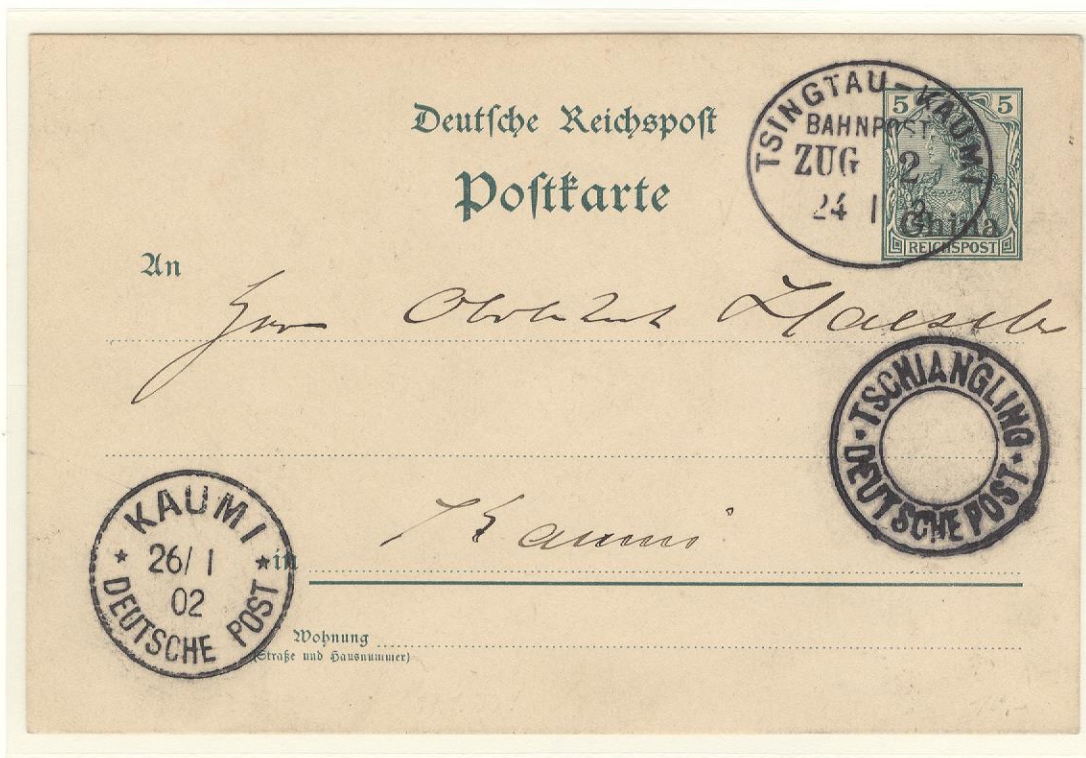 Deutsche Reichspost
Postkarte
TSINGTAU-KAUMI
BAHNPOST.
ZUG 2
24 1 2
5 5
China
REICHSPOST
An
Herrn
TSCHIANGLING
DEUTSCHE POST
KAUMI
26/1
02
DEUTSCHE POST
in Kaumi
Wohnung
(Straße und Hausnummer)